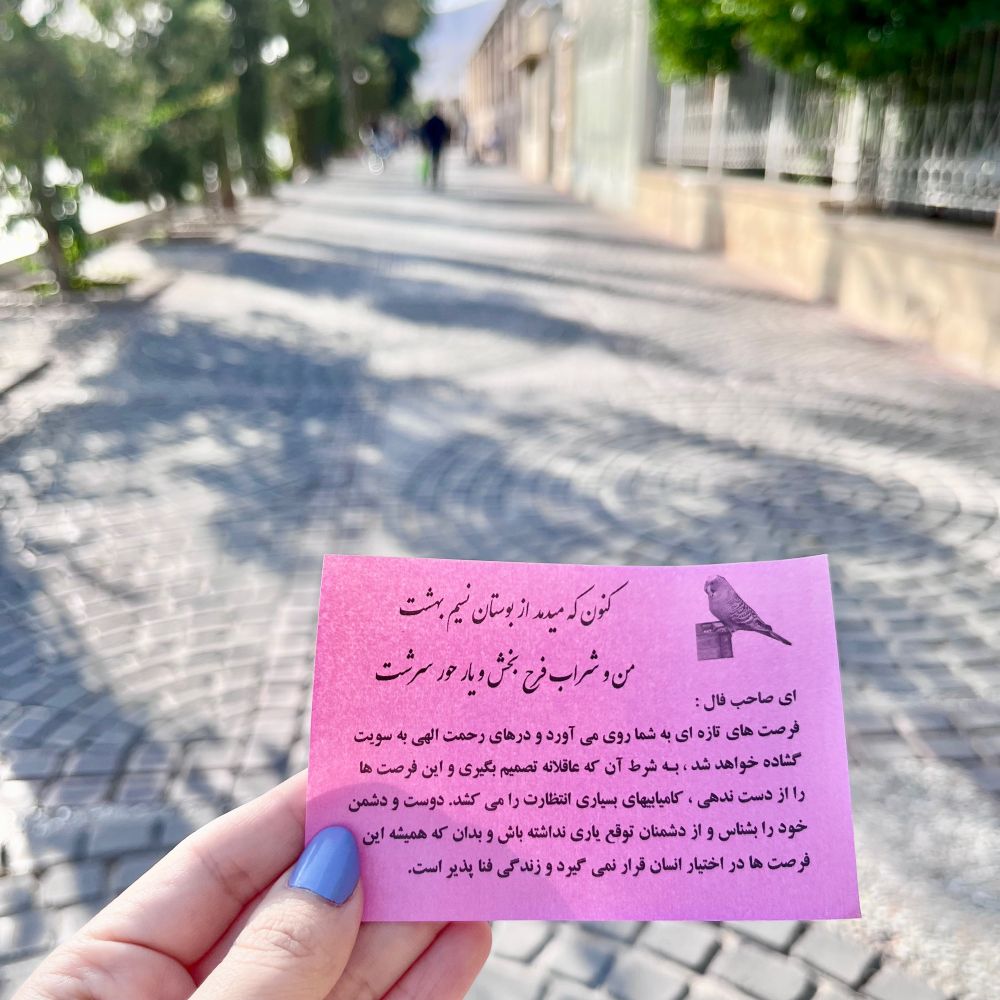 کنون که میدمد از بوستان نسیم بهشت
من و شراب فرح بخش و یار حور سرشت
ای صاحب فال :
فرصت های تازه ای به شما روی می آورد و درهای رحمت الهی به سویت
گشاده خواهد شد ، به شرط آن که عاقلانه تصمیم بگیری و این فرصت ها
را از دست ندهی ، کامیابیهای بسیاری انتظارت را می کشد. دوست و دشمن
خود را بشناس و از دشمنان توقع یاری نداشته باش و بدان که همیشه این
فرصت ها در اختیار انسان قرار نمی گیرد و زندگی فنا پذیر است.